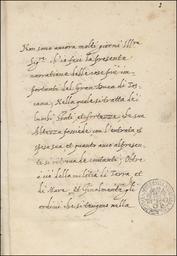 Non sono ancora molti giorni Ill.re
Sig.re ch'io feci la presente
narratione delle cose più im
portanti del Gran Duca di Tos
cana; Nella quale si tratta de
luoghi, stati, et fortezze, che sua
Altezza possiede con l'entrata et
spesa sua et quanto anco al presen
te si ritrova de contanti; Oltre
a ciò della militia di Terra, et
di Mare, et finalmente gli
ordini che si tengono nella